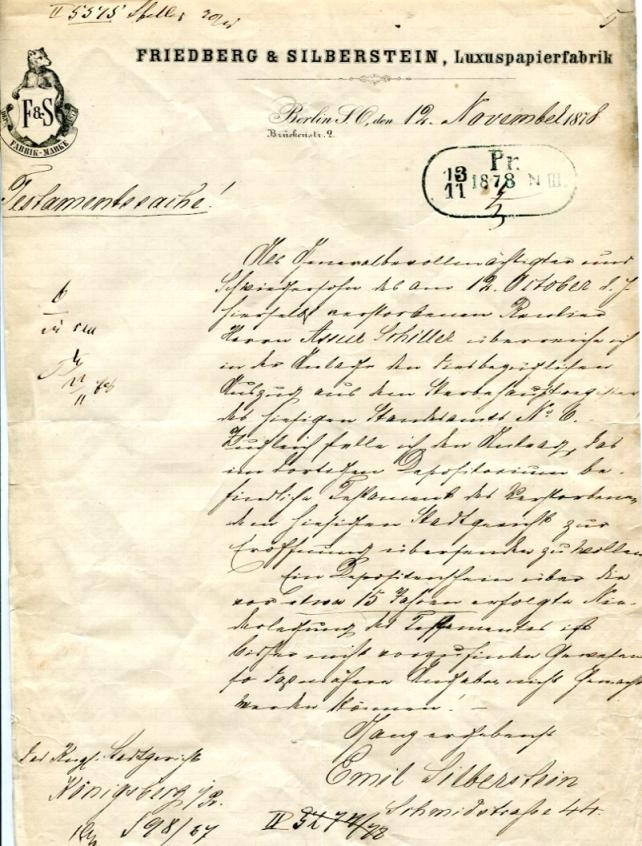 II 5575 Schiller
5
FRIEDBERG & SILBERSTEIN, Luxuspapierfabrik
F&S
FABRIK-MARKE
Berlin S.O., den 12. November 1878
Brückenstr. 2.
Pr.
13/11 1878 N III.
Testamentssache!
Als Generalbevollmächtigter und
Schwiegersohn des am 12. October d. J.
hierselbst verstorbenen Rentier
Herrn Assur Schiller überreiche ich
in der Anlage den
Auszug aus dem Sterbehauptregister
des hiesigen Standesamts No 6.
Zugleich stelle ich den Antrag, das
im dortigen Depositorium be-
findliche Testament des Verstorbenen
dem hiesigen Stadtgericht zur
Eröffnung übersenden zu wollen
Ein Depositenschein über die
vor etwa 15 Jahren erfolgte Nie-
derlegung des Testamentes ist
bisher nicht vorzufinden gewesen
so daß nähere Angaben nicht gemacht
werden können! –
Ganz ergebenst
Emil Silberstein
Schmidstraße 44.
Das Kngl. Stadtgericht
Königsberg i/Pr.
598/57